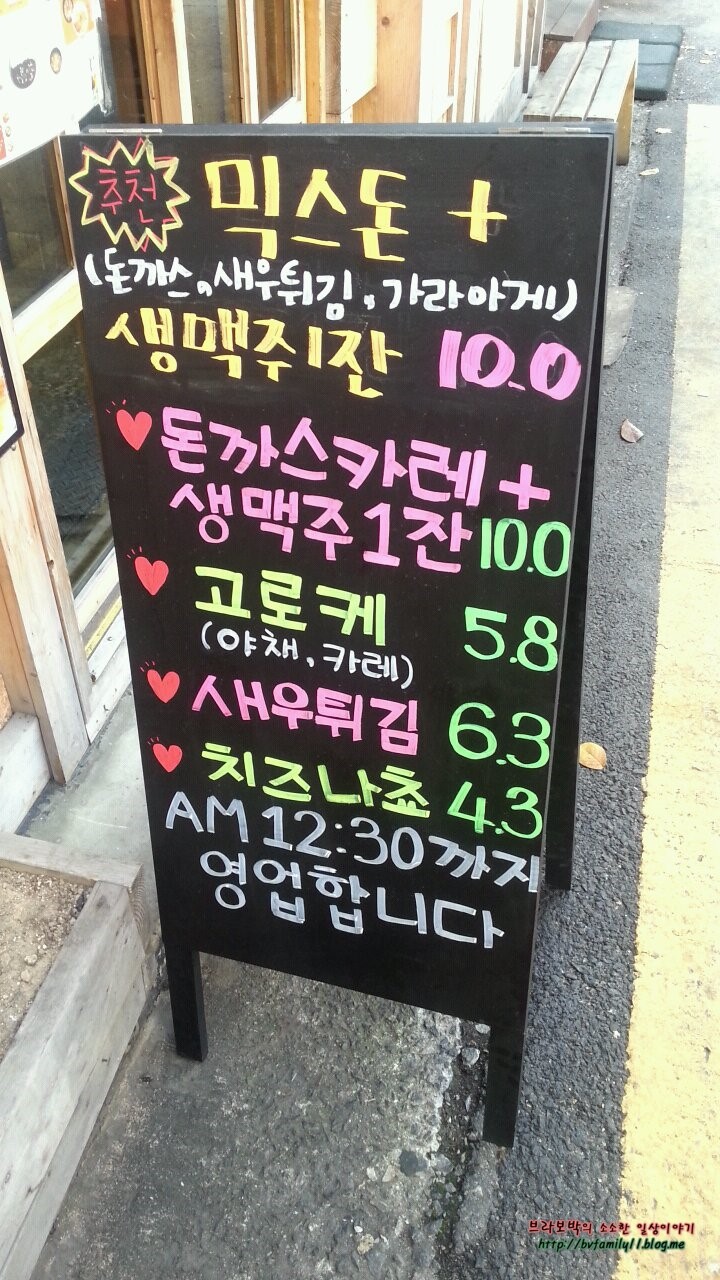 추천 믹스돈 +
(돈까스, 새우튀김, 가라아게)
생맥주1잔 10.0
돈까스카레 +
생맥주1잔 10.0
고로케 5.8
(야채, 카레)
새우튀김 6.3
치즈나쵸 4.3
AM 12:30까지
영업합니다
브라보박의 소소한 일상이야기
http://bvfamily11.blog.me